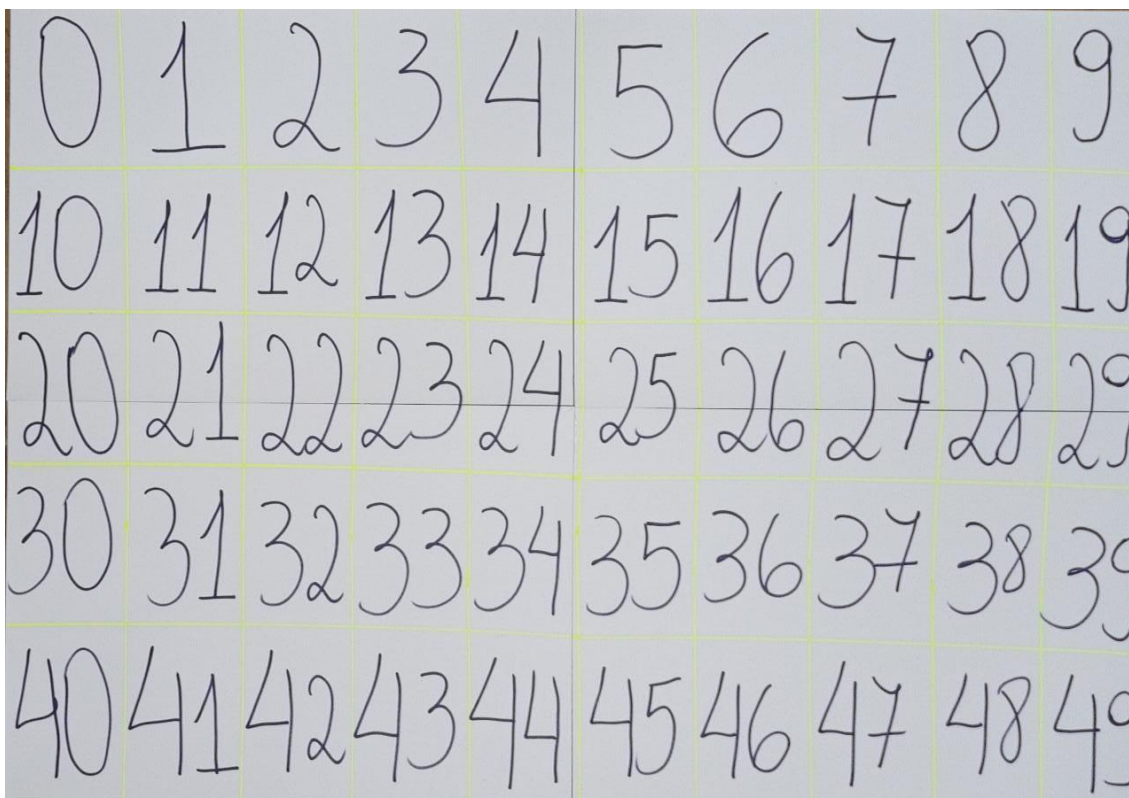 0 1 2 3 4 5 6 7 8 9
10 11 12 13 14 15 16 17 18 19
20 21 22 23 24 25 26 27 28 29
30 31 32 33 34 35 36 37 38 39
40 41 42 43 44 45 46 47 48 49